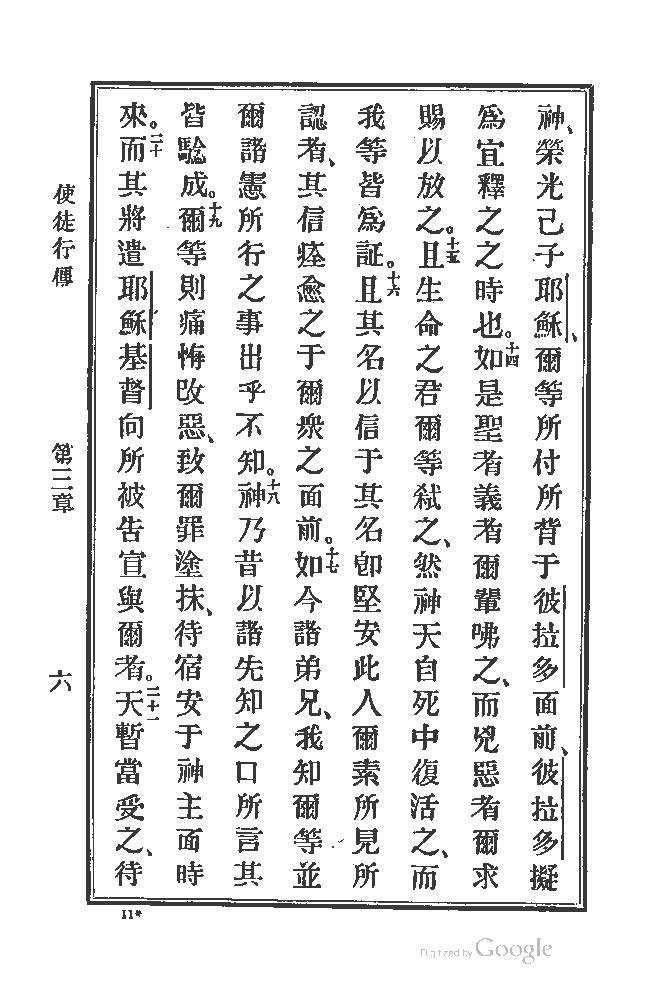 神、榮光己子耶穌、爾等所付所背于彼拉多面前、彼拉多擬
爲宜釋之之時也。十四如是聖者義者爾輩咈之、而兇惡者爾求
賜以放之。十五且生命之君爾等弒之、然神天自死中復活之、而
我等皆爲証。十六且其名以信于其名卽堅安此人爾素所見所
認者、其信痊愈之于爾衆之面前。十七如今諸弟兄、我知爾等並
爾諸憲所行之事出乎不知。十八神乃昔以諸先知之口所言其
皆騐成。十九爾等則痛悔改惡、致爾罪塗抹、待宿安于神主面時
來。二十而其將遣耶穌基督向所被告宣與爾者。二十一天暫當受之、待
使徒行傳 第三章 六
11*
Digitized by Google